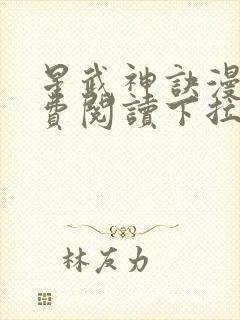 星武神訣漫
費閱讀下拉
林友力